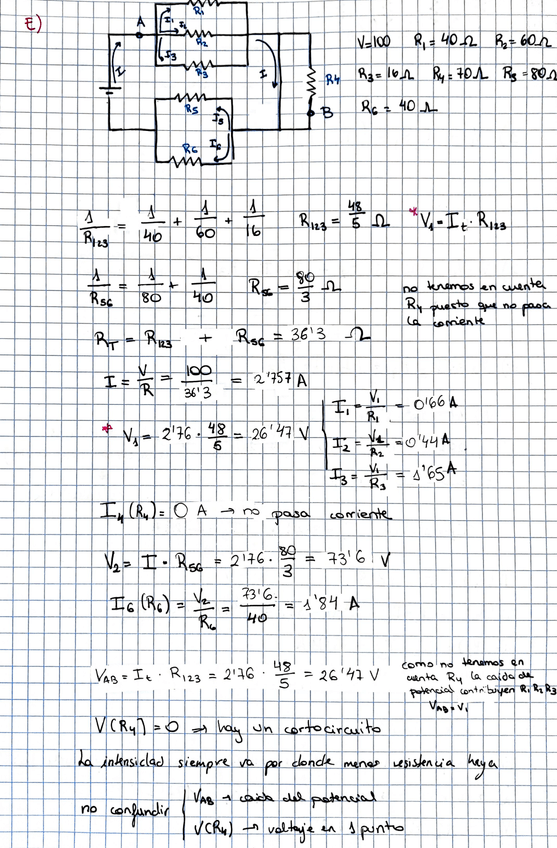 E)
A
I₁
R₁
I₂
R₂
I₃
R₃
I
I
R₄
B
R₅
I₅
I₆
R₆
V=100 R₁=40Ω R₂=60Ω
R₃=16Ω R₄=70Ω R₅=80Ω
R₆=40Ω
1/R₁₂₃ = 1/40 + 1/60 + 1/16 R₁₂₃ = 48/5 Ω *V₁=Iₜ·R₁₂₃
1/R₅₆ = 1/80 + 1/40 R₅₆ = 80/3 Ω
no tenemos en cuenta
R₄ puesto que no pasa
la corriente
R_T = R₁₂₃ + R₅₆ = 36'3 Ω
I = V/R = 100/36'3 = 2'757 A
* V₁ = 2'76 · 48/5 = 26'47 V
I₁ = V₁/R₁ = 0'66 A
I₂ = V₁/R₂ = 0'44 A
I₃ = V₁/R₃ = 1'65 A
I₄ (R₄) = 0 A → no pasa corriente
V₂ = I · R₅₆ = 2'76 · 80/3 = 73'6 V
I₆ (R₆) = V₂/R₆ = 73'6/40 = 1'84 A
V_AB = Iₜ · R₁₂₃ = 2'76 · 48/5 = 26'47 V
como no tenemos en
cuenta R₄ la caída de
potencial contribuyen R₁ R₂ R₃
V_AB = V₁
V(R₄) = 0 → hay un cortocircuito
La intensidad siempre va por donde menos resistencia haya
no confundir
V_AB → caida del potencial
V(R₄) → voltaje en 1 punto